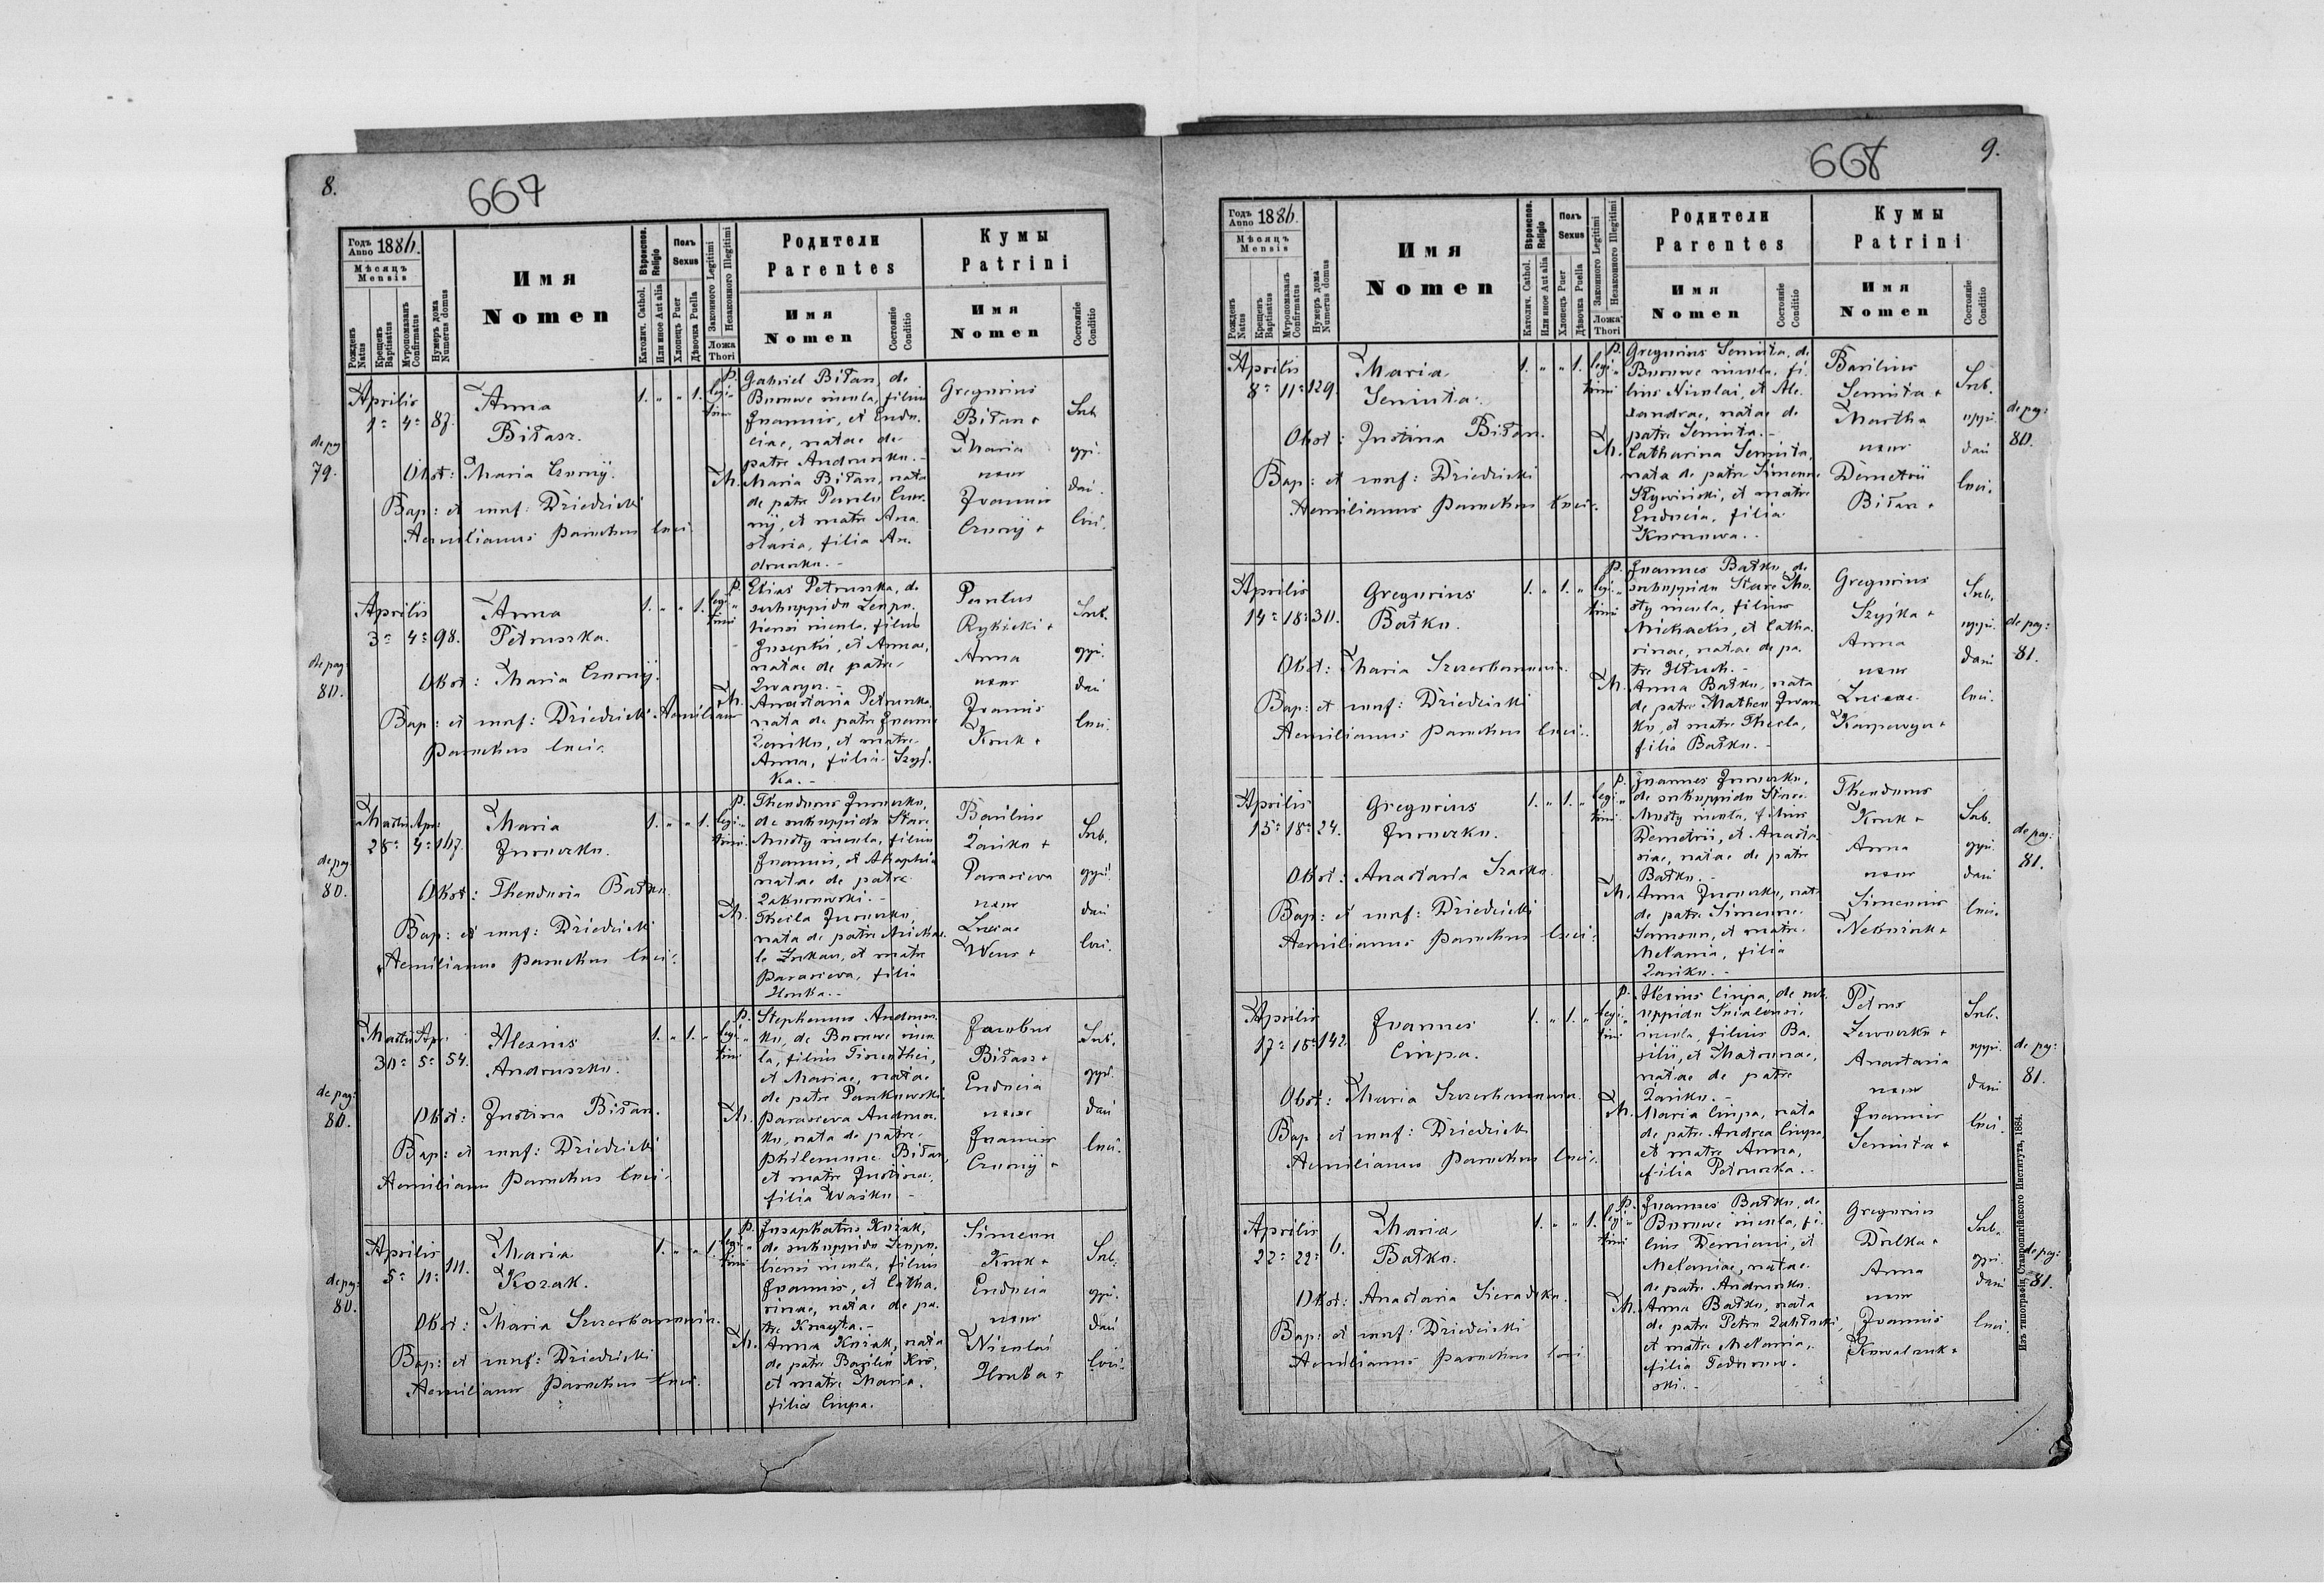 8.
667
Годъ Anno 1886.
Мѣсяцъ
Mensis
Рожденъ Natus
Крещенъ Baptisatus
Мvропомазанъ Confirmatus
Нумеръ дома Numerus domus
Имя
Nomen
Вѣроиспов. Religio
Католич. Cathol.
Или иное Aut alia
Полъ
Sexus
Хлопецъ Puer
Дѣвочка Puella
Законного Legitimi
Незаконного Illegitimi
Ложа
Thori
Родители
Parentes
Имя
Nomen
Состояніе
Conditio
Кумы
Patrini
Имя
Nomen
Состояніе
Conditio
de pag
79.
Aprilis
1a 4a 87.
Anna
Biłasz.
Obst: Maria Czornij.
Bap: et conf: Dziedzicki
Aemilianus Parochus loci.
1. „ „ 1. legitimi
P. Gabriel Biłas, de
Busowe incola, filius
Joannis, et Eudo-
ciae, natae de
patre Andruszko. -
M. Maria Biłas, nata
de patre Paulo Czor-
nij, et matre Ana-
stasia, filia An-
druszko. -
Gregorius
Biłas +
Maria
uxor
Joannis
Czornij +
Sub
oppi-
dani
loci.
de pag:
80.
Aprilis
3a 4a 98.
Anna
Petruszka.
Obst: Maria Czornij.
Bap: et conf: Dziedzicki Aemilianus
Parochus loci.
1. „ „ 1. legitimi
P. Elias Petruszka, de
suboppido
incola, filius
Josephi, et Annae,
natae de patre
Zwaryz. -
M. Anastasia Petruszka
nata de patre Joanne
Zaniko, et matre
Anna, filia Szyj-
ka. -
Paulus
Rykicki +
Anna
uxor
Joannis
Kruk +
Sub.
oppi-
dani
loci.
de pag
80.
Martii Apr:
28a 4a 107.
Maria
Jurorzko.
Obst: Theodosia Bałko.
Bap: et conf: Dziedzicki
Aemilianus Parochus loci.
1. „ „ 1. legitimi.
P. Theodorus Jurorzko,
de suboppido Stare
Miasty incola, filius
Joannis, et Agaphia
natae de patre
Zakorowski. -
M. Thecla Jurorzko,
nata de patre Micha-
le Lukan, et matre
Parasceva, filia
Hruka. -
Basilius
Zaniko +
Parasceva
uxor
Lucae
Wons +
Sub.
oppi-
dani
loci.
de pag:
80.
Martii Apr:
30a 5a 54.
Alexius
Andruszko.
Obst: Justina Biłas.
Bap: et conf: Dziedzicki
Aemilianus Parochus loci.
1. „ 1. „ legitimi
P. Stephanus Andrusz-
ko, de Busowe inco-
la, filius Timothei,
et Mariae, natae
de patre Pankowski
M. Parasceva Andrusz-
ko, nata de patre
Philemone Biłas,
et matre Justina,
filia Wasko. -
Jacobus
Biłasz +
Eudocia
uxor
Joannis
Czornij +
Sub.
oppi-
dani
loci.
de pag:
80.
Aprilis
5a 11a 111.
Maria
Kozak.
Obst: Maria
Bap: et conf: Dziedzicki
Aemilianus Parochus loci.
1. „ „ 1. legitimi
P. Josaphatus Kozak,
de suboppido
incola, filius
Joannis, et Catha-
rinae, natae de pa-
tre Knazyta. -
M. Anna Kozak, nata
de patre Basilio Kos,
et matre Maria,
filia Cinpa.
Simeon
Kruk +
Eudocia
uxor
Nicolai
Hruba +
Sub.
oppi-
dani
loci.
668
9.
Годъ Anno 1886.
Мѣсяцъ
Mensis
Рожденъ Natus
Крещенъ Baptisatus
Мvропомазанъ Confirmatus
Нумеръ дома Numerus domus
Имя
Nomen
Вѣроиспов. Religio
Католич. Cathol.
Или иное Aut alia
Полъ
Sexus
Хлопецъ Puer
Дѣвочка Puella
Законного Legitimi
Незаконного Illegitimi
Ложа
Thori
Родители
Parentes
Имя
Nomen
Состояніе
Conditio
Кумы
Patrini
Имя
Nomen
Состояніе
Conditio
Aprilis
8a 11a 129.
Maria
Seminta.
Obst: Justina Biłas.
Bap: et conf: Dziedzicki
Aemilianus Parochus loci.
1. „ „ 1. legitimi
P. Gregorius Seminta, de
Busowe incola, fi-
lius Nicolai, et Ale-
xandrae, natae de
patre Seminta. -
M. Catharina Seminta,
nata de patre Simeone
Sływiński, et matre
Eudocia, filia
Basilius
Seminta +
Martha
uxor
Demetrii
Biłas +
Sub.
oppi-
dani
loci.
de pag:
80.
Aprilis
14a 18a 30.
Gregorius
Bałko.
Obst: Maria
Bap: et conf: Dziedzicki
Aemilianus Parochus loci.
1. „ 1. „ legitimi
P. Joannes Bałko, de
suboppido Stare Mia-
sty incola, filius
Michaelis, et Catha-
rinae, natae de pa-
tre Hłuch. -
M. Anna Bałko, nata
de patre Matheo Iwan-
ko, et matre Thecla,
filia Bałko. -
Gregorius
Szyjka +
Anna
uxor
Lucae
Karpowycz +
Sub.
oppi-
dani
loci.
de pag:
81.
Aprilis
15a 18a 24.
Gregorius
Jurorzko.
Obst: Anastasia Szarko.
Bap: et conf: Dziedzicki
Aemilianus Parochus loci.
1. „ 1. „ legitimi
P. Joannes Jurorzko,
de suboppido Stare
Miasty incola, filius
Demetrii, et Anasta-
siae, natae de patre
Bałko. -
M. Anna Jurorzko, nata
de patre Simeone
Samson, et matre
Melania, filia
Zaniko. -
Theodorus
Kruk +
Anna
uxor
Simeonis
Sub.
oppi-
dani
loci.
de pag:
81.
Aprilis
17a 18a 142.
Joannes
Cinpa.
Obst: Maria
Bap: et conf: Dziedzicki
Aemilianus Parochus loci.
1. „ 1. „ legitimi
P. Alexius Cinpa, de sub-
oppido
incola, filius Ba-
silii, et Matronae,
natae de patre
Zaniko. -
M. Maria Cinpa, nata
de patre Andrea Cinpa,
et matre Anna,
filia Petruszka. -
Petrus
Anastasia
uxor
Joannis
Seminta +
Sub.
oppi-
dani
loci.
de pag:
81.
Aprilis
22a 22a 6.
Maria
Bałko.
Obst: Anastasia Sieradzka.
Bap: et conf: Dziedzicki
Aemilianus Parochus loci.
1. „ „ 1. legitimi
P. Joannes Bałko, de
Busowe incola, fi-
lius Demiani, et
Melaniae, natae
de patre Andruszko.
M. Anna Bałko, nata
de patre Petro
et matre Melania,
filia
ski. -
Gregorius
Dulka +
Anna
uxor
Joannis
Kowalczuk +
Sub.
oppi-
dani
loci.
de pag:
81.
Изъ типографіи Ставропигійского Института, 1884.